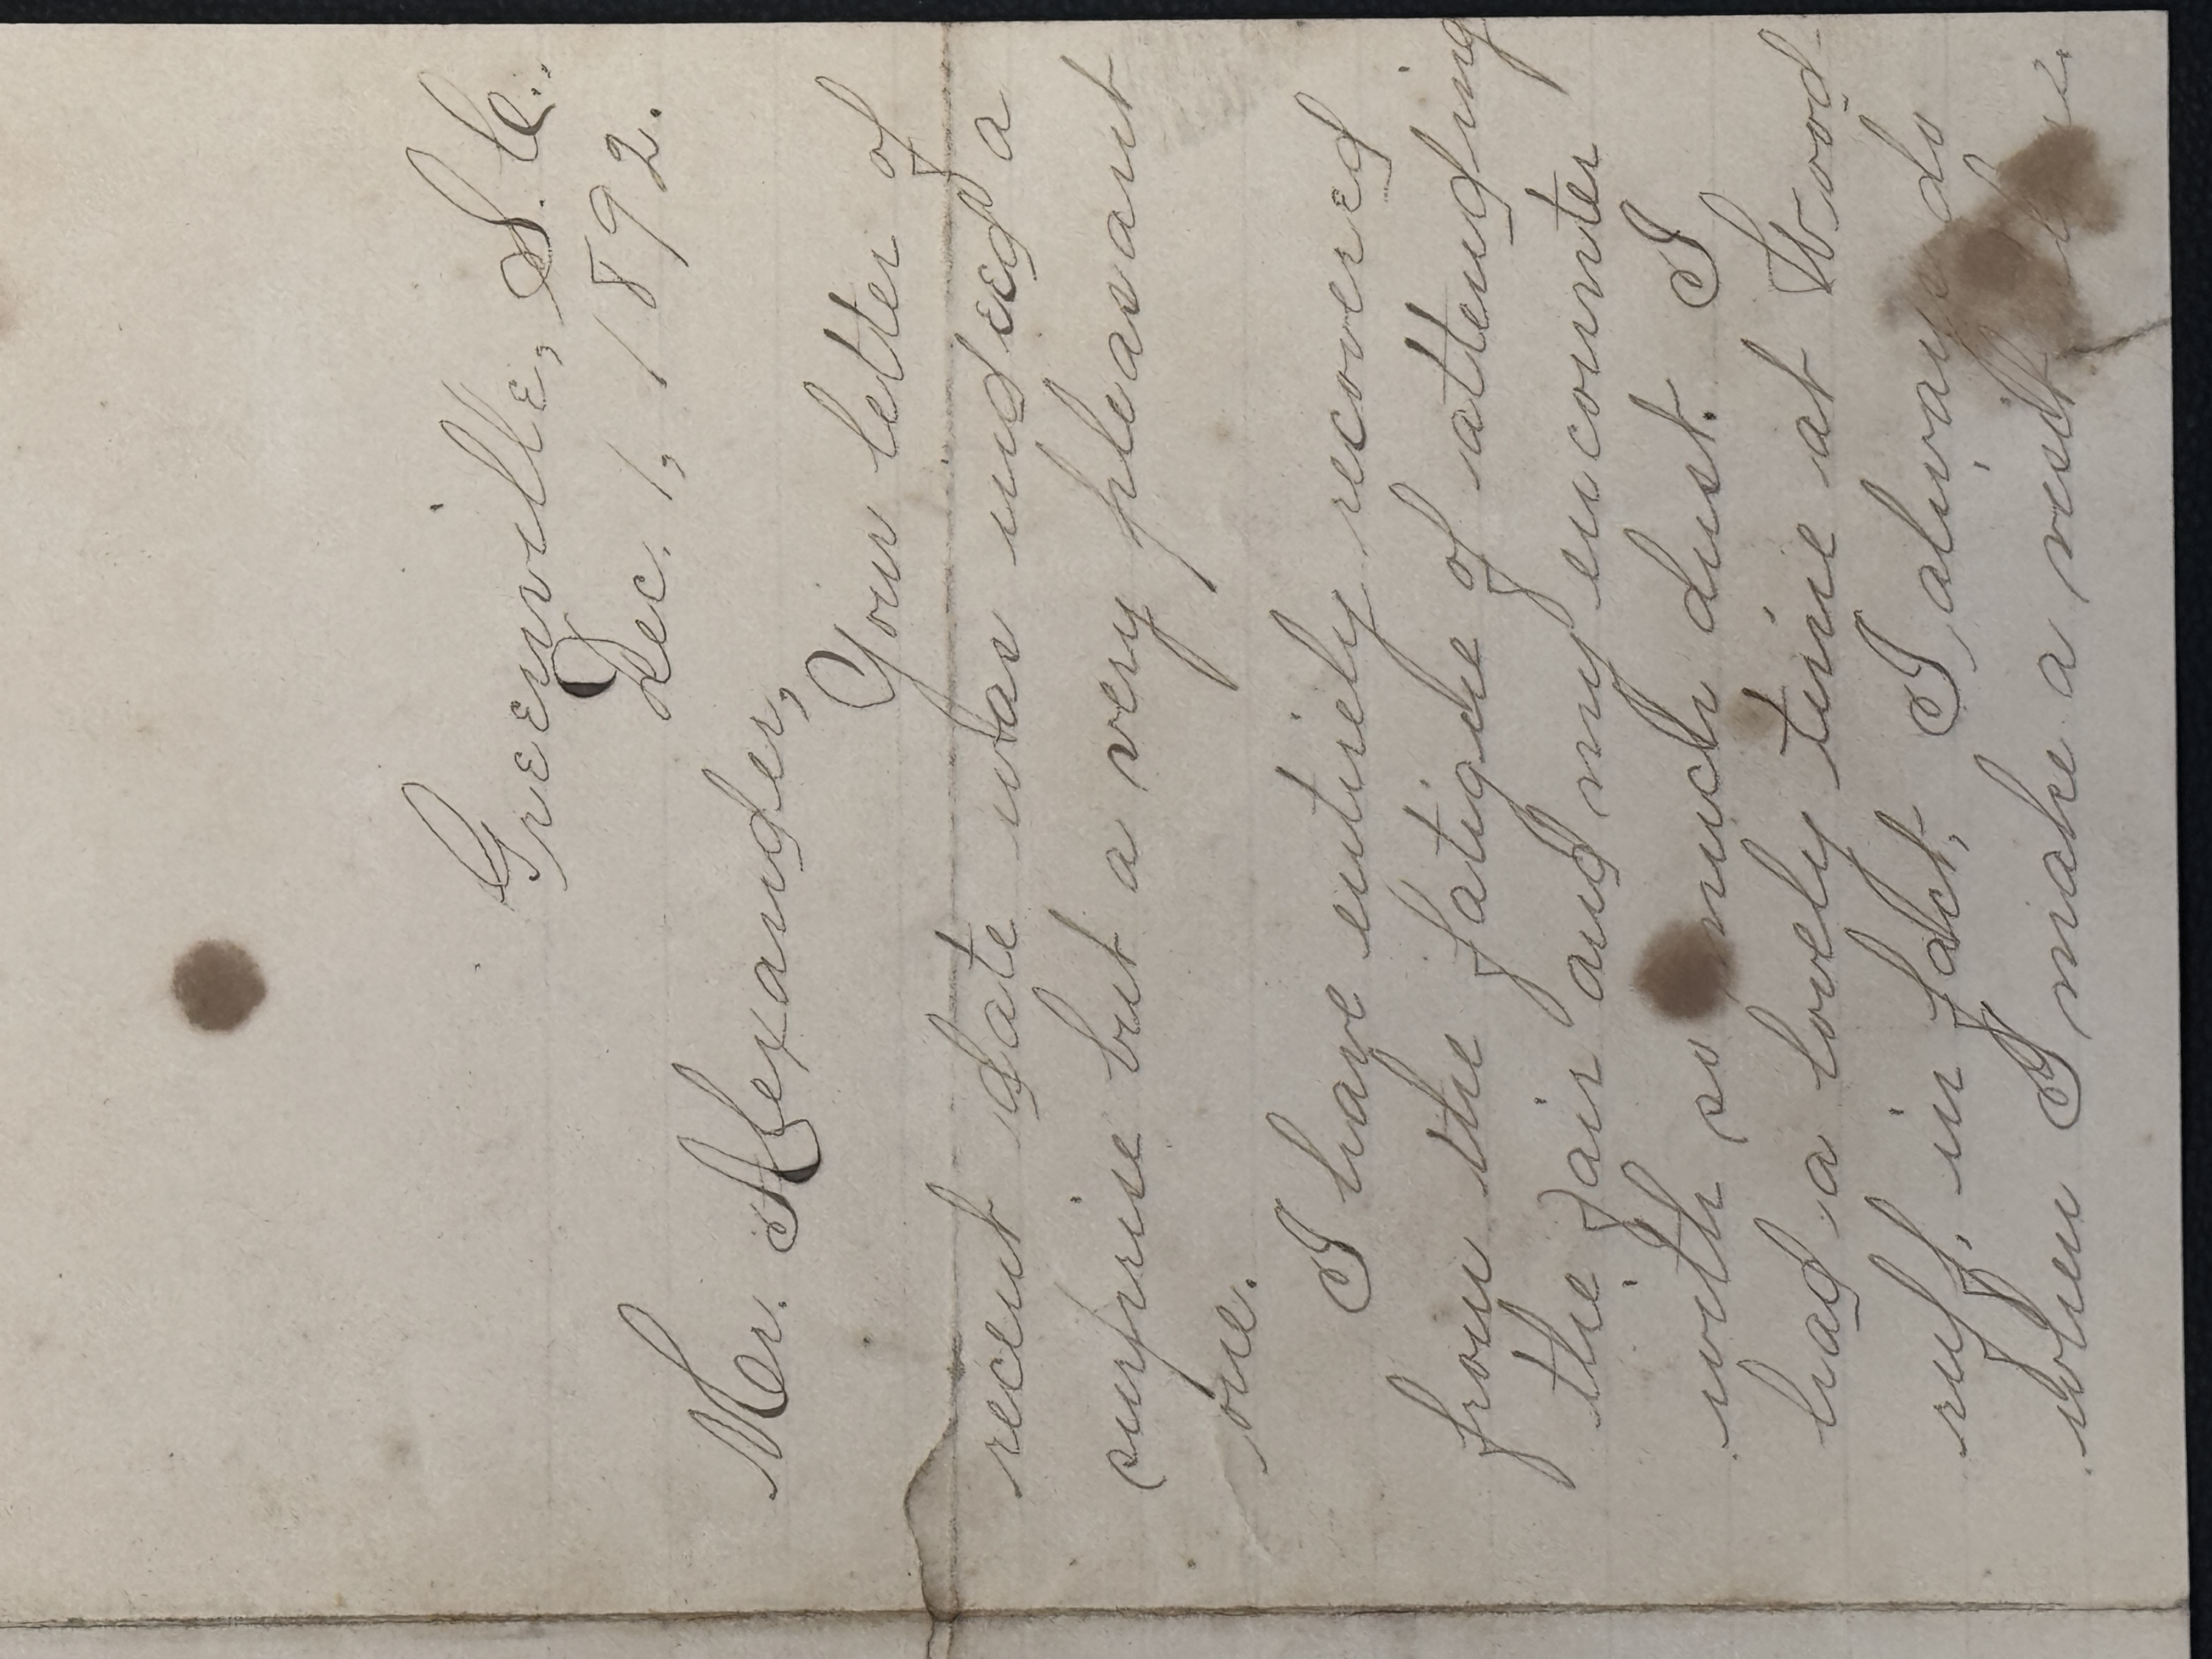 Greenville, S.C.:
Dec. 1, 1892.
Mr. Alexander,
Your letter of
recent date was indeed a
surprise but a very pleasant
one.
I have entirely recovered
from the fatigue of attending
the Fair and my encounter
with so much dust. I
had a lovely time at Wood-
ruff, in fact, I always do
when I make a visit